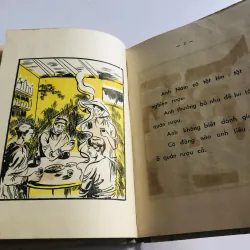 — 2 —
Anh Nam có tật lớn : tật
nghiện rượu.
Anh thường bỏ nhà để lui tới
quán rượu.
Anh không biết danh giá
Có đồng nào anh tiêu
ở quán rượu cả.